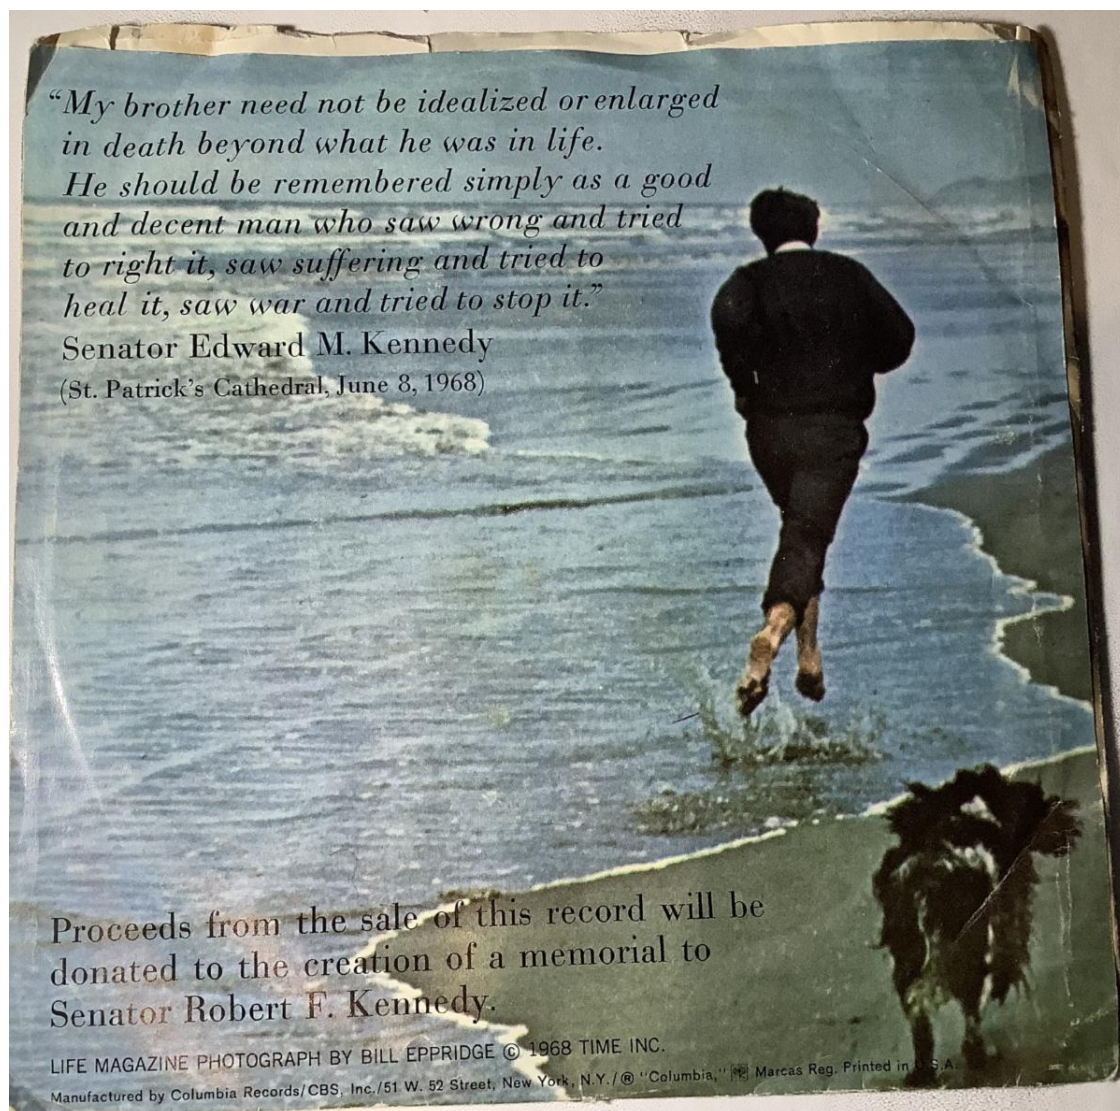 “My brother need not be idealized or enlarged
in death beyond what he was in life.
He should be remembered simply as a good
and decent man who saw wrong and tried
to right it, saw suffering and tried to
heal it, saw war and tried to stop it.”
Senator Edward M. Kennedy
(St. Patrick's Cathedral, June 8, 1968)
Proceeds from the sale of this record will be
donated to the creation of a memorial to
Senator Robert F. Kennedy.
LIFE MAGAZINE PHOTOGRAPH BY BILL EPPRIDGE © 1968 TIME INC.
Manufactured by Columbia Records/CBS, Inc./51 W. 52 Street, New York, N.Y./® "Columbia," Marcas Reg. Printed in U.S.A.